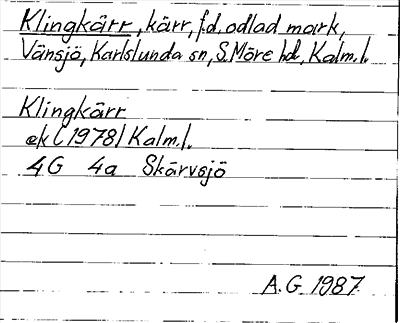 Klingkärr, kärr, f.d. odlad mark,
Vänsjö, Karlslunda sn, S. Möre hd, Kalm. l.
Klingkärr
ek (1978) Kalm. l.
4G 4a Skärvsjö
A.G. 1987